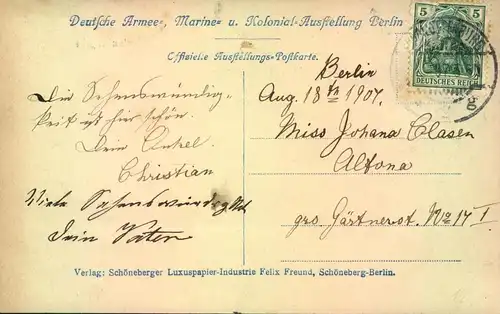 Deutsche Armee-, Marine- u. Kolonial-Ausstellung Berlin
Offizielle Ausstellungs-Postkarte.
5 5
DEUTSCHES REICH
Berlin
Aug. 18th 1907.
Miss Johana Clasen
Altona
grs Gärtnerst. No 17 I
Die Sehenswürdig-
keit ist hier schön.
Dein Onkel
Christian
Viele
Dein Vater
Verlag: Schöneberger Luxuspapier-Industrie Felix Freund, Schöneberg-Berlin.